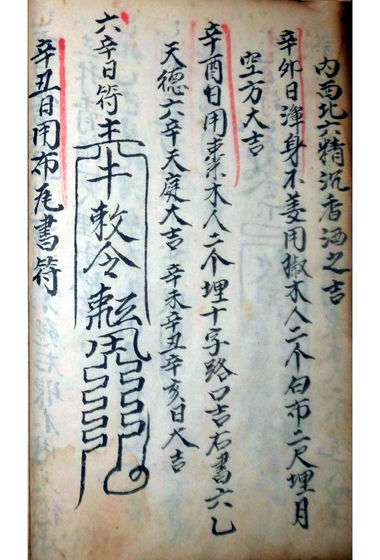 內西北六精沉香酒之吉
辛卯日渾身不姜用椒木人二个白布二尺埋月
空方大吉
辛酉日用棗木人二个埋十字路口吉右書六乙
天德六辛天庭大吉 辛未辛丑辛亥日大吉
六辛日符
敕令
辛丑日用布尾書符